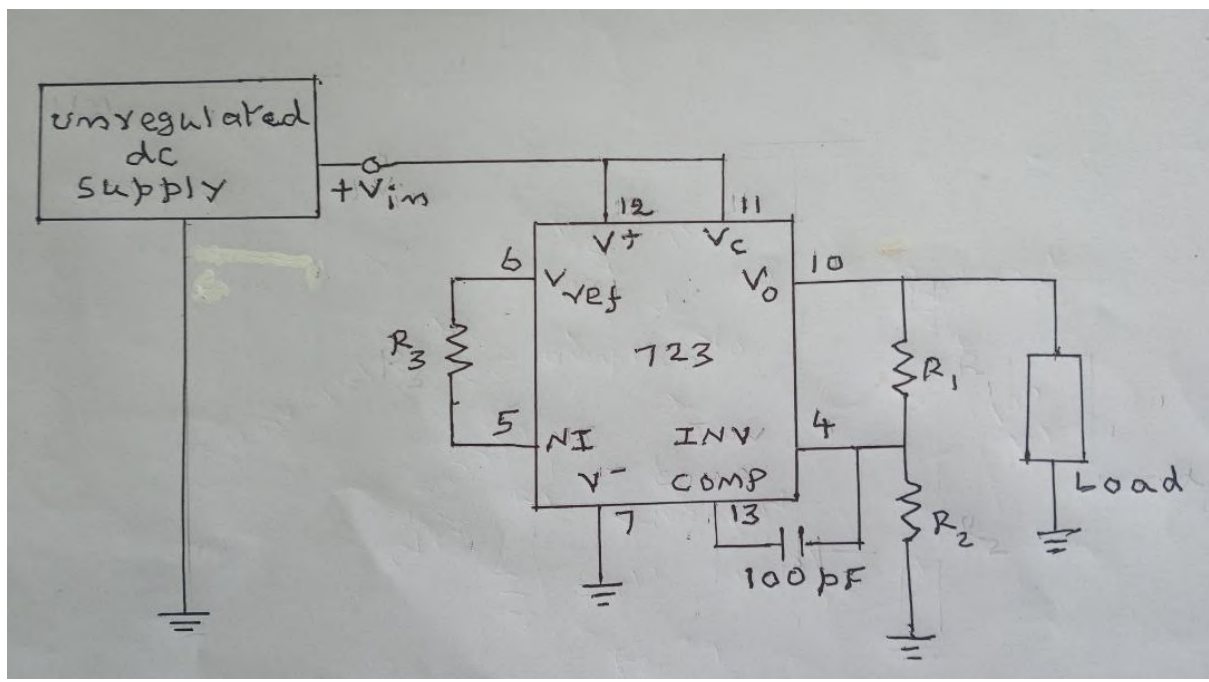 unregulated
dc
supply
+Vin
12
11
V+
Vc
6
Vref
Vo
10
R3
723
R1
5
NI
INV
4
V-
COMP
Load
7
13
R2
100pF